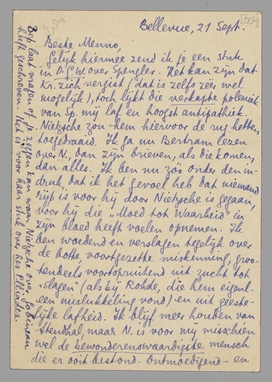 Bellevue, 21 Sept.
Beste Menno,
Gelijk hiermee zend ik je een stuk
in D.G.W. over Spengler. Het kan zijn dat
Kr. zich vergist (dat is zelfs zéér wel
mogelijk), toch lijkt die verkapte polemiek
van Sp. mij laf en hoogst antipathiek.
Nietzsche zou hem hiervoor de rug hebben
toegedraaid. Ik ga nu Bertram lezen
over N. dan zijn brieven, als die komen,
dan alles. Ik ben nu zóó onder den in-
druk, dat ik het gevoel heb dat niemand
rijp is voor hij door Nietzsche is gegaan,
voor hij die "Moed tot Waarheid" in
zijn bloed heeft voelen opnemen. Ik
ben woedend en verslagen tegelijk over
de botte, voortgezette miskenning, groo-
tendeels voortspruitend uit zucht tot
"slagen" (als bij Rohde, die hem eigenl.
een mislukkeling vond) en uit geeste-
lijke lafheid. Ik blijf meer houden van
Stendhal, maar N. is voor mij misschien
wel de bewonderenswaardigste mensch
die er ooit bestond. Ontmoedigend - en
Bep laat vragen of je zeggen kan waar Nietzsche over
heeft geschreven. Het is voor haar stuk over